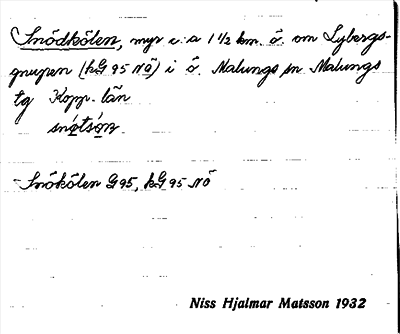 Snödkölen, myr c:a 1 1/2 km. ö. om Lybergs-
gnupen (kG 95 NÖ) i ö. Malungs sn Malungs
tg Kopp. län
Snökölen G95, kG 95 NÖ
Niss Hjalmar Matsson 1932